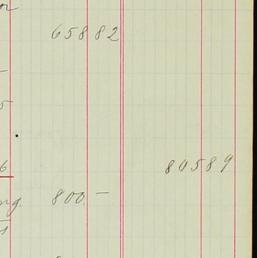 65882
6 80589
ng. 800 –